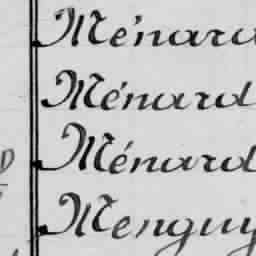 Ménard
Ménard
Ménard
Menguy